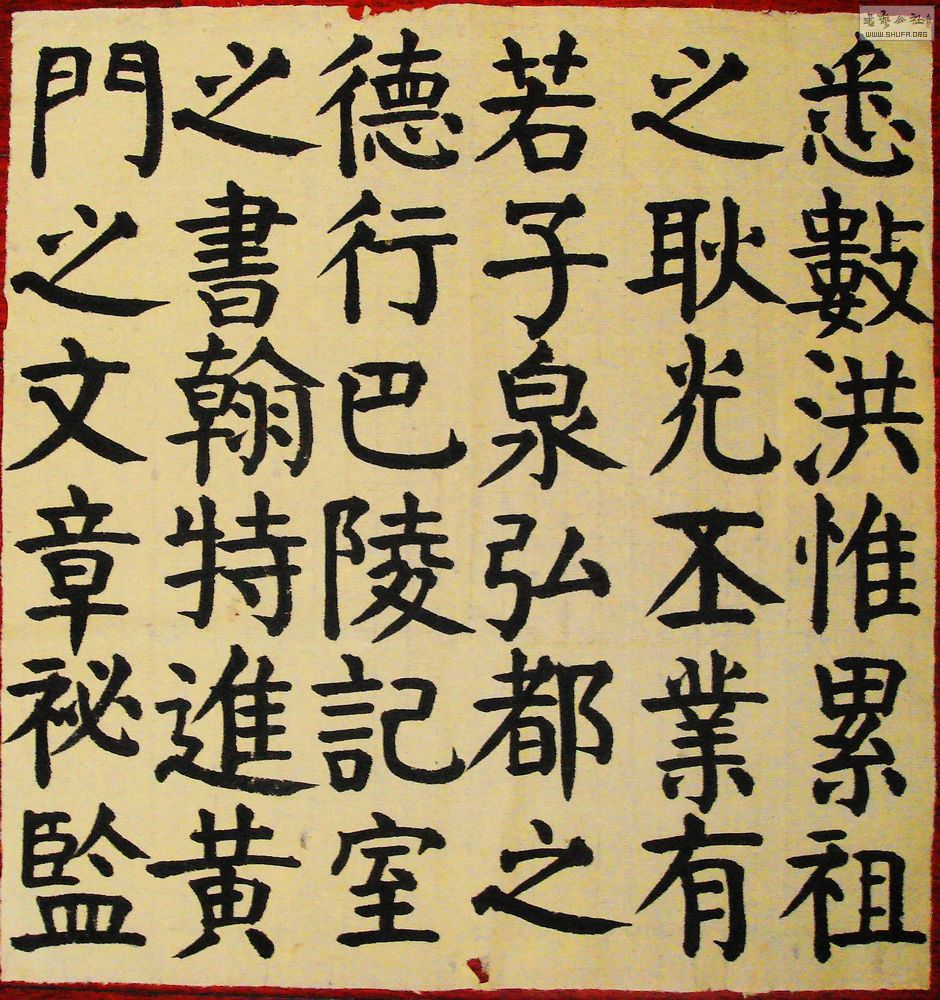 悉數洪惟累祖
之耿光丕業有
若子泉弘都之
德行巴陵記室
之書翰特進黃
門之文章祕監
WWW.SHUFA.ORG